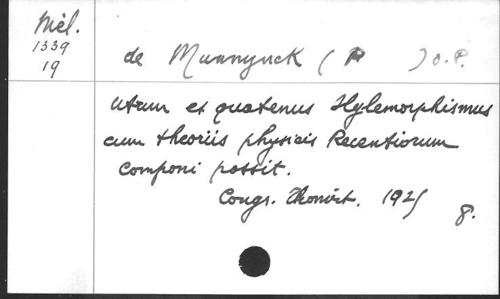 Mél.
1339
19
de Munnynck (P ) O.P.
Utrum et quatenus Hylemorphismus
cum theoriis physicis Recentiorum
componi possit.
Congr. Thomist. 1925
8.